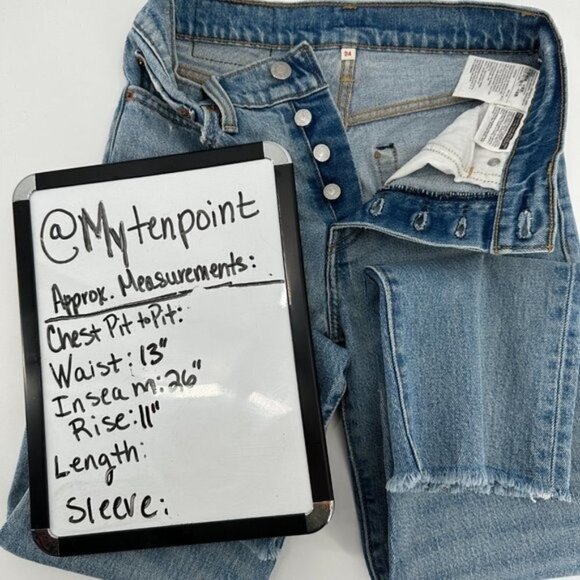 @Mytenpoint
Approx. Measurements:
Chest Pit to Pit:
Waist: 13"
Inseam: 26"
Rise: 11"
Length:
Sleeve:
24